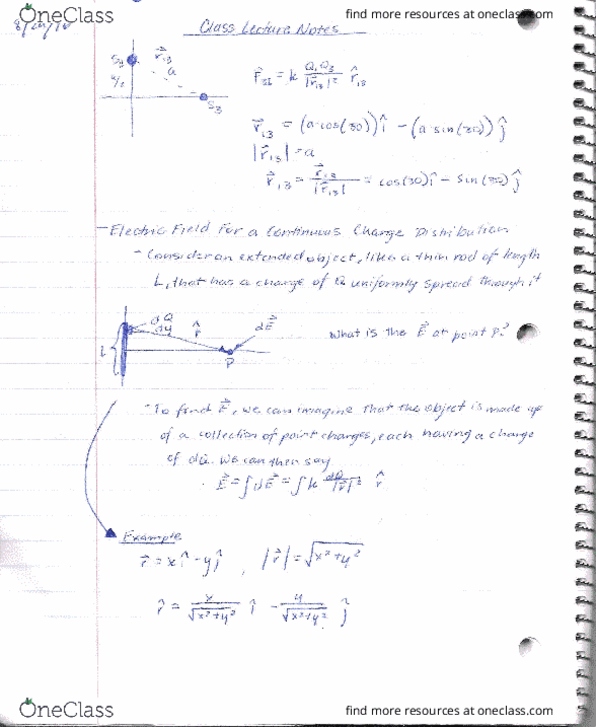 OneClass
find more resources at oneclass.com
Class Lecture Notes
S₃
r⃗₁₃
a
S₃
F⃗₂₁ = k Q₁Q₃/|r⃗₁₃|² r̂₁₃
r⃗₁₃ = (a·cos(30))î - (a·sin(30))ĵ
|r⃗₁₃| = a
r⃗₁₃ = r⃗₁₃/|r⃗₁₃| = cos(30)î - sin(30)ĵ
- Electric Field For a Continuous Charge Distribution
- Consider an extended object, like a thin rod of length
L, that has a charge of Q uniformly spread through it
dQ
dy
r̂
dE⃗
What is the E⃗ at point P?
L
P
- To find E⃗, we can imagine that the object is made up
of a collection of point charges, each having a charge
of dQ. We can then say
· E⃗ = ∫dE⃗ = ∫k dQ/|r⃗|² r̂
Example
r⃗ = xî - yĵ , |r⃗| = √x²+y²
r̂ = x/√x²+y² î - y/√x²+y² ĵ
OneClass
find more resources at oneclass.com